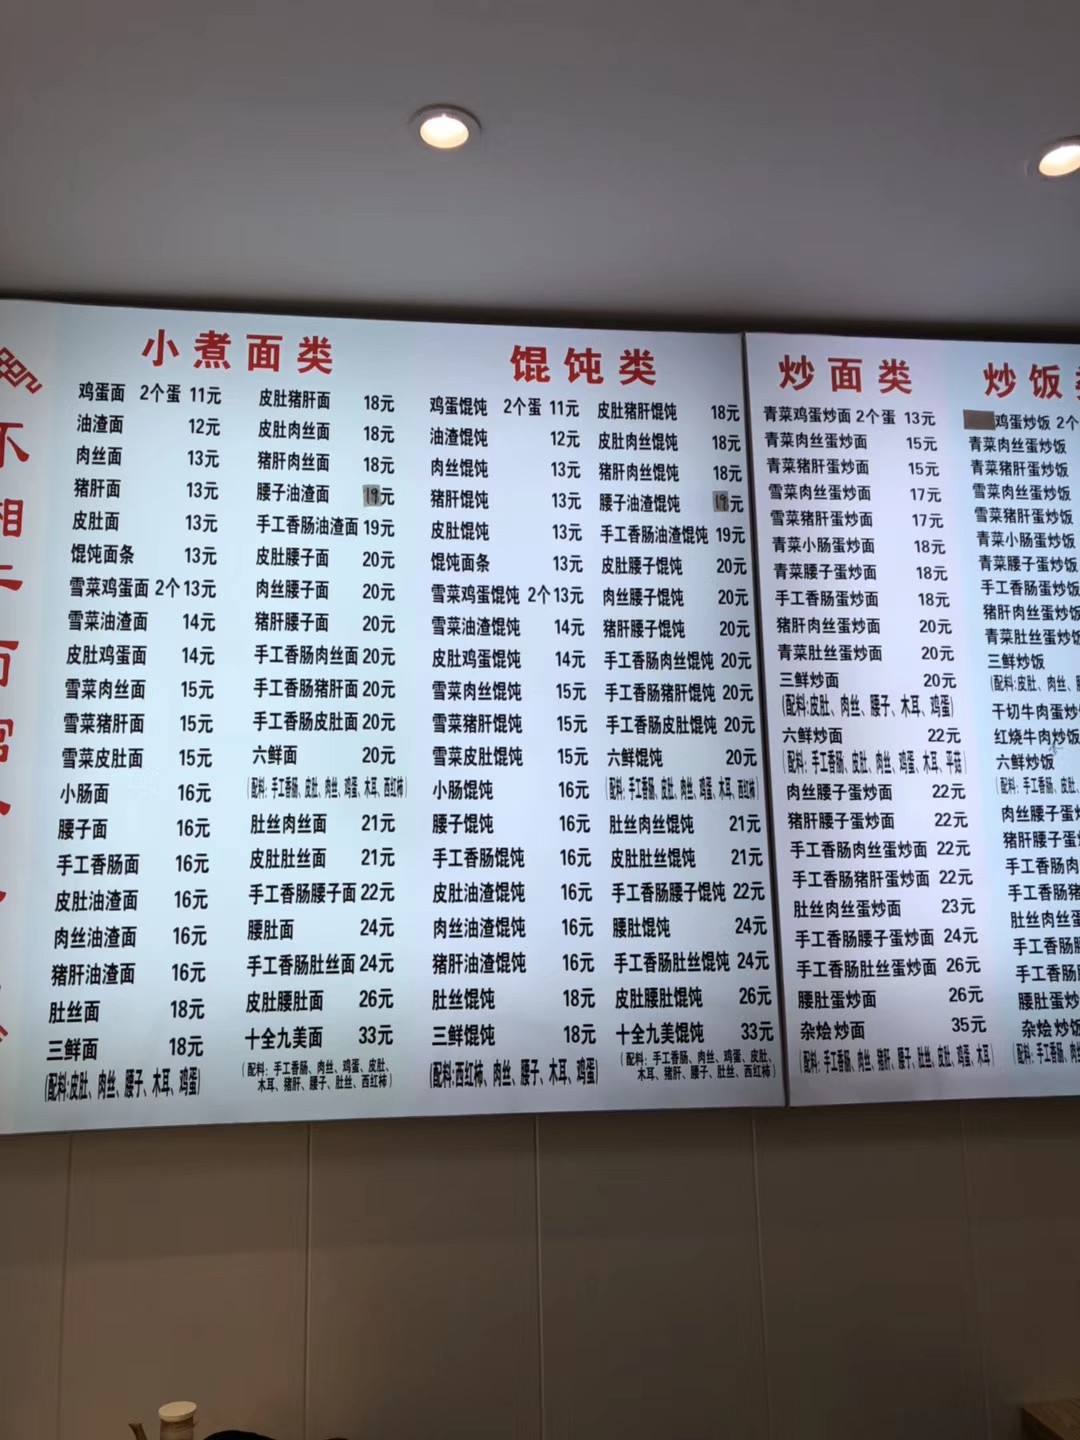 小煮面类
鸡蛋面 2个蛋 11元
油渣面 12元
肉丝面 13元
猪肝面 13元
皮肚面 13元
馄饨面条 13元
雪菜鸡蛋面 2个13元
雪菜油渣面 14元
皮肚鸡蛋面 14元
雪菜肉丝面 15元
雪菜猪肝面 15元
雪菜皮肚面 15元
小肠面 16元
腰子面 16元
手工香肠面 16元
皮肚油渣面 16元
肉丝油渣面 16元
猪肝油渣面 16元
肚丝面 18元
三鲜面 18元
(配料:皮肚、肉丝、腰子、木耳、鸡蛋)
皮肚猪肝面 18元
皮肚肉丝面 18元
猪肝肉丝面 18元
腰子油渣面 19元
手工香肠油渣面 19元
皮肚腰子面 20元
肉丝腰子面 20元
猪肝腰子面 20元
手工香肠肉丝面 20元
手工香肠猪肝面 20元
手工香肠皮肚面 20元
六鲜面 20元
(配料: 手工香肠、皮肚、肉丝、鸡蛋、木耳、西红柿)
肚丝肉丝面 21元
皮肚肚丝面 21元
手工香肠腰子面 22元
腰肚面 24元
手工香肠肚丝面 24元
皮肚腰肚面 26元
十全九美面 33元
(配料: 手工香肠、肉丝、鸡蛋、皮肚、
木耳、猪肝、腰子、肚丝、西红柿)
馄饨类
鸡蛋馄饨 2个蛋 11元
油渣馄饨 12元
肉丝馄饨 13元
猪肝馄饨 13元
皮肚馄饨 13元
馄饨面条 13元
雪菜鸡蛋馄饨 2个13元
雪菜油渣馄饨 14元
皮肚鸡蛋馄饨 14元
雪菜肉丝馄饨 15元
雪菜猪肝馄饨 15元
雪菜皮肚馄饨 15元
小肠馄饨 16元
腰子馄饨 16元
手工香肠馄饨 16元
皮肚油渣馄饨 16元
肉丝油渣馄饨 16元
猪肝油渣馄饨 16元
肚丝馄饨 18元
三鲜馄饨 18元
(配料:西红柿、肉丝、腰子、木耳、鸡蛋)
皮肚猪肝馄饨 18元
皮肚肉丝馄饨 18元
猪肝肉丝馄饨 18元
腰子油渣馄饨 19元
手工香肠油渣馄饨 19元
皮肚腰子馄饨 20元
肉丝腰子馄饨 20元
猪肝腰子馄饨 20元
手工香肠肉丝馄饨 20元
手工香肠猪肝馄饨 20元
手工香肠皮肚馄饨 20元
六鲜馄饨 20元
(配料: 手工香肠、皮肚、肉丝、鸡蛋、木耳、西红柿)
肚丝肉丝馄饨 21元
皮肚肚丝馄饨 21元
手工香肠腰子馄饨 22元
腰肚馄饨 24元
手工香肠肚丝馄饨 24元
皮肚腰肚馄饨 26元
十全九美馄饨 33元
(配料: 手工香肠、肉丝、鸡蛋、皮肚、
木耳、猪肝、腰子、肚丝、西红柿)
炒面类
青菜鸡蛋炒面 2个蛋 13元
青菜肉丝蛋炒面 15元
青菜猪肝蛋炒面 15元
雪菜肉丝蛋炒面 17元
雪菜猪肝蛋炒面 17元
青菜小肠蛋炒面 18元
青菜腰子蛋炒面 18元
手工香肠蛋炒面 18元
猪肝肉丝蛋炒面 20元
青菜肚丝蛋炒面 20元
三鲜炒面 20元
(配料:皮肚、肉丝、腰子、木耳、鸡蛋)
六鲜炒面 22元
(配料: 手工香肠、皮肚、肉丝、鸡蛋、木耳、平菇)
肉丝腰子蛋炒面 22元
猪肝腰子蛋炒面 22元
手工香肠肉丝蛋炒面 22元
手工香肠猪肝蛋炒面 22元
肚丝肉丝蛋炒面 23元
手工香肠腰子蛋炒面 24元
手工香肠肚丝蛋炒面 26元
腰肚蛋炒面 26元
杂烩炒面 35元
(配料: 手工香肠、肉丝、猪肝、腰子、肚丝、皮肚、鸡蛋、木耳)
炒饭
鸡蛋炒饭 2个
青菜肉丝蛋炒饭
青菜猪肝蛋炒饭
雪菜肉丝蛋炒饭
雪菜猪肝蛋炒饭
青菜小肠蛋炒饭
青菜腰子蛋炒饭
手工香肠蛋炒饭
猪肝肉丝蛋炒饭
青菜肚丝蛋炒饭
三鲜炒饭
(配料:皮肚、肉丝、
干切牛肉蛋炒
红烧牛肉炒饭
六鲜炒饭
(配料: 手工香肠、皮肚、
肉丝腰子蛋
猪肝腰子蛋
手工香肠肉
手工香肠猪
肚丝肉丝蛋
手工香肠
手工香肠
腰肚蛋炒
杂烩炒饭
(配料: 手工香肠、